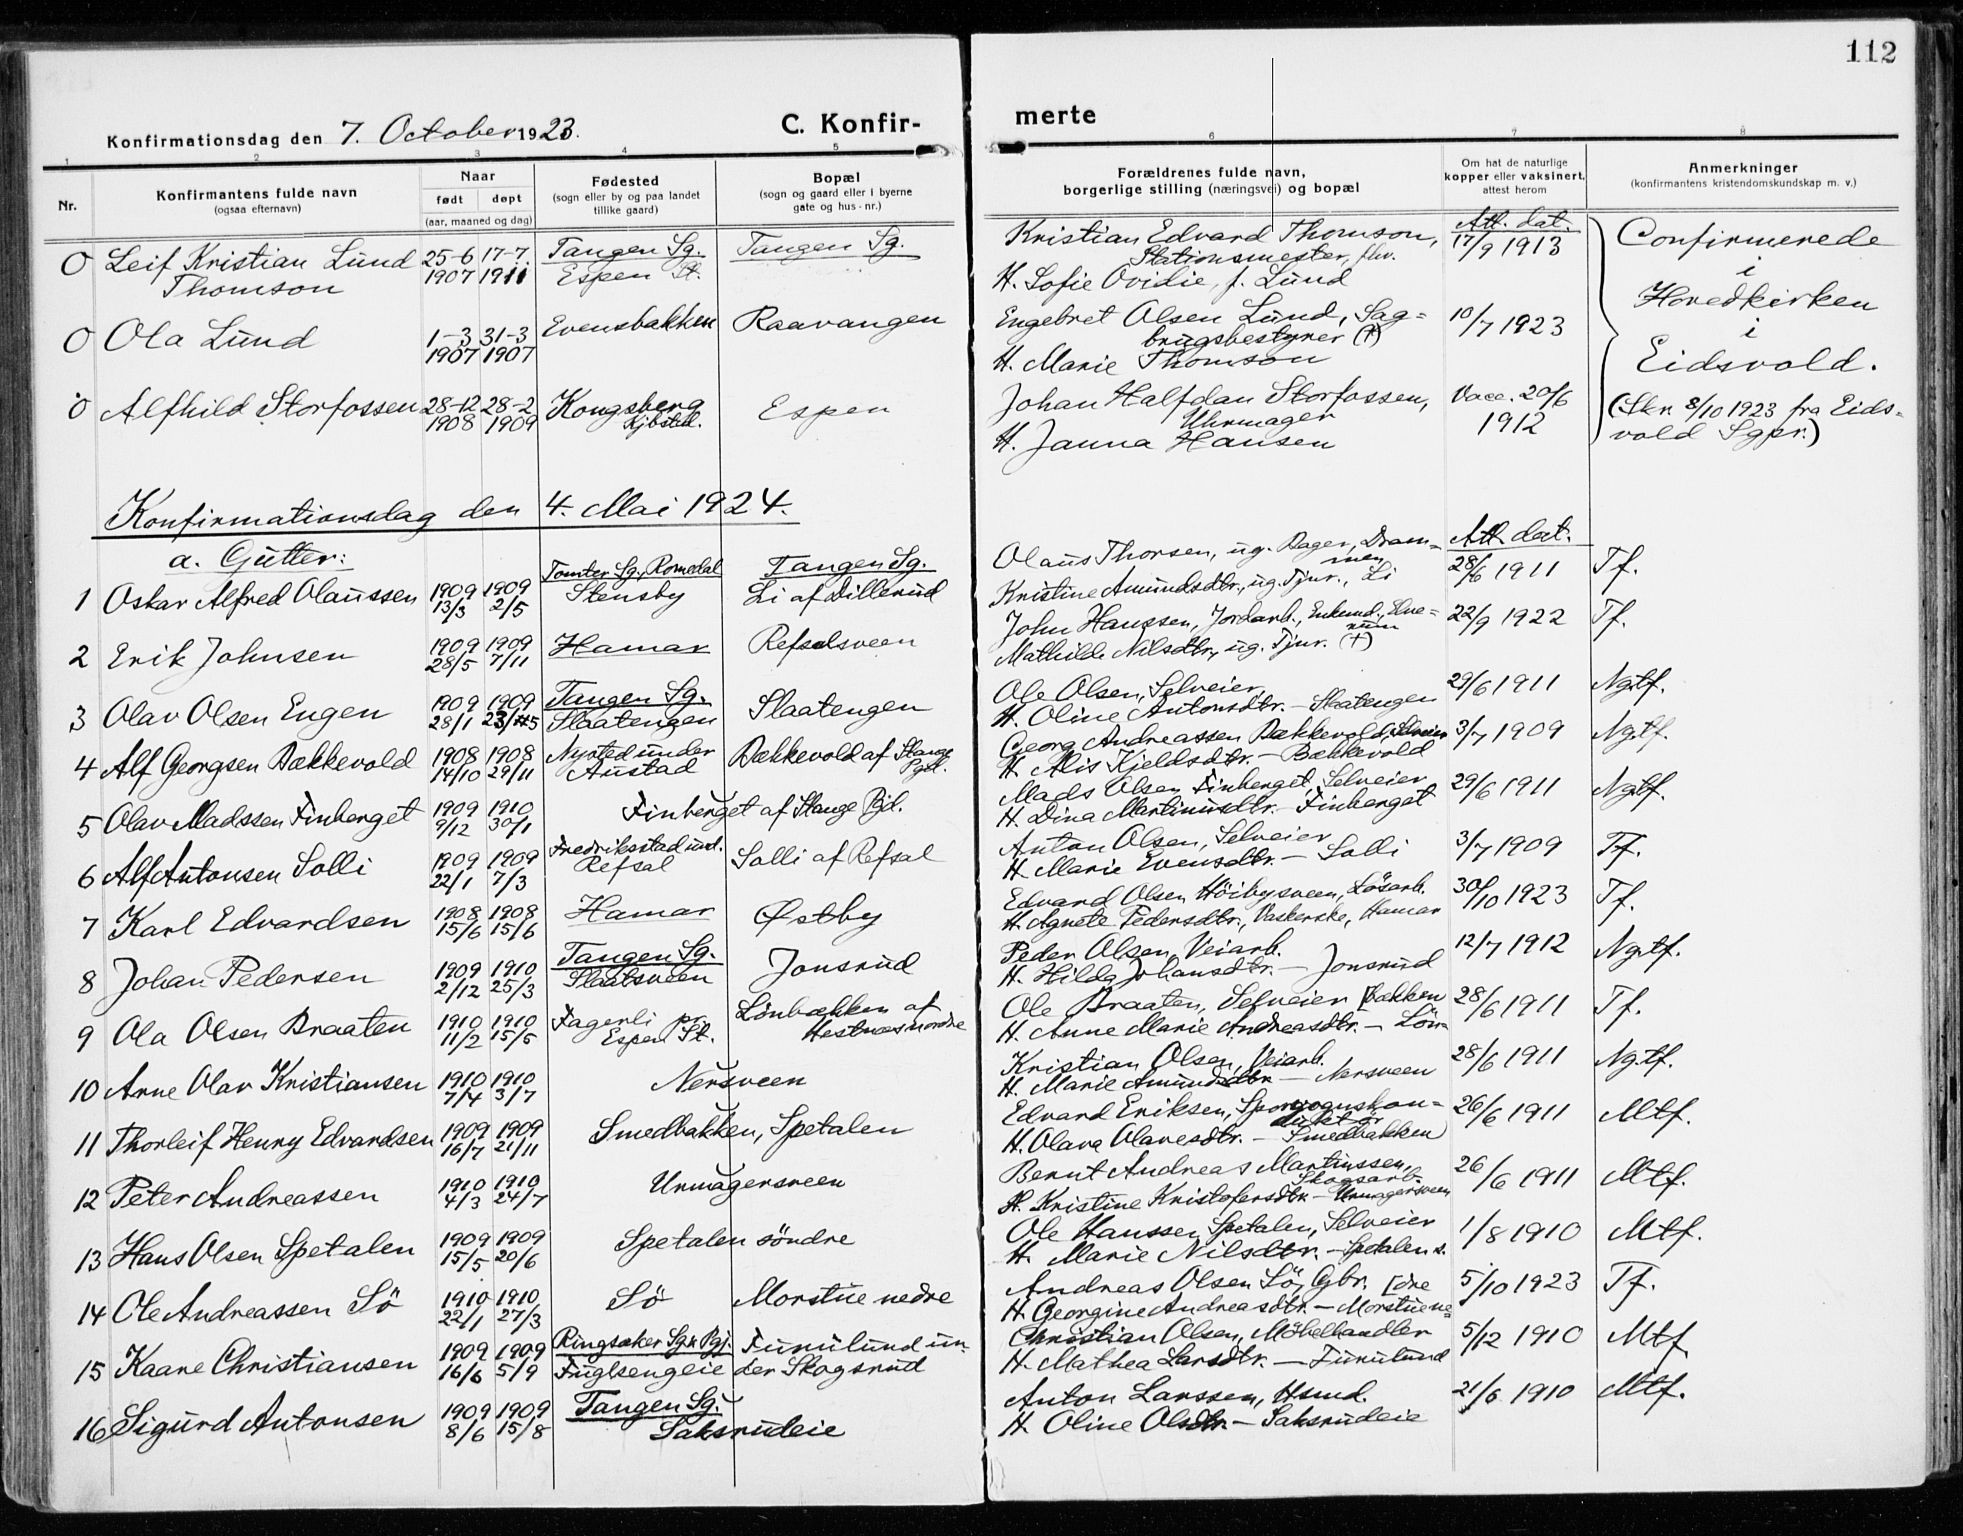 112
Konfirmationsdag den 7. October 1923.
C. Konfir-
merte
1 2 3 4 5 6 7 8
Nr.
Konfirmantens fulde navn
(ogsaa efternavn)
Naar
født døpt
(aar, maaned og dag)
Fødested
(sogn eller by og paa landet
tillike gaard)
Bopæl
(sogn og gaard eller i byerne
gate og hus-nr.)
Forældrenes fulde navn,
borgerlige stilling (næringsvei) og bopæl
Om hat de naturlige
kopper eller vaksinert,
attest herom
Anmerkninger
(konfirmantens kristendomskundskap m. v.)
Att. dat.
0 Leif Kristian Lund 25-6 17-7 Tangen Sg. Tangen Sg. Kristian Edvard Thomson, 17/9 1913 Confirmerede
Thomson 1907 1911 Espen St. Stationsmester, fhv. i
H. Sofie Ovidie, f. Lund Hovedkirken
0 Ola Lund 1-3 31-3 Evensbakken Raavangen Engebret Olsen Lund, Sag= 10/7 1923 i
1907 1907 brugsbestyrer (+)
H. Marie Thomson Eidsvold.
0 Alfhild Storfossen 28-12 28-2 Kongsberg Espen Johan Halfdan Storfossen, Vacc. 20/6 (Skr. 8/10 1923 fra Eids=
1908 1909 Kjbsted. Uhrmager 1912 vold Sgpr.)
H. Janna Hansen
Konfirmationsdag den 4. Mai 1924.
a. Gutter: Att. dat.
Tomter Sg., Romedal Tangen Sg. Olaus Thorsen, ug. Bager, Dram=
men
1 Oskar Alfred Olaussen 1909 1909 Stensby Li af Dillerud Kristine Amundsdtr., ug. Tjnr., Li 28/6 1911 Tf.
13/3 2/5
2 Erik Johnsen 1909 1909 Hamar Refsalsveen John Hanssen, Jordarb., Enkemd., Elve= 22/9 1922 Tf.
rum
28/5 7/11 Mathilde Nilsdtr., ug. Tjnr. (+)
3 Olav Olsen Engen 1909 1909 Tangen Sg. Slaatengen Ole Olsen, Selveier 29/6 1911 Ngtf.
28/1 23/5 Slaatengen H. Oline Antonsdtr. - Slaatengen
4 Alf Georgsen Bækkevold 1908 1908 Nysted under Bækkevold af Stange Georg Andreassen Bækkevold, Selveier 3/7 1909 Ngtf.
14/10 29/11 Austad Pgd. H. Alis Kjeldsdtr. - Bækkevold
5 Olav Madssen Finberget 1909 1910 Finberget af Stange Pgd. Mads Olsen Finberget, Selveier 29/6 1911 Ngtf.
9/12 30/1 H. Dina Martinusdtr. - Finberget
6 Alf Antonsen Solli 1909 1909 Fredriksstad und. Solli af Refsal Anton Olsen, Selveier 3/7 1909 Tf.
22/1 7/3 Refsal H. Marie Evensdtr. - Solli
7 Karl Edvardsen 1908 1908 Hamar Østby Edvard Olsen Höibysveen, Lösarb. 30/10 1923 Tf.
15/6 15/6 H. Agnete Pedersdtr., Vaskerske, Hamar
8 Johan Pedersen 1909 1910 Tangen Sg. Jonsrud Peder Olsen, Veiarb. 12/7 1912 Ngtf.
2/12 25/3 Slaatsveen H. Hilda Johansdtr. - Jonsrud
9 Ola Olsen Braaten 1910 1910 Fagerli pr. Lönbækken af Ole Braaten, Selveier [bækken 28/6 1911 Tf.
11/2 15/5 Espen St. Hestnæs nordre H. Anne Marie Andreasdtr. - Lön=
10 Arne Olav Kristiansen 1910 1910 Nersveen Kristian Olsen, Veiarb. 28/6 1911 Ngtf.
7/4 3/7 H. Marie Amundsdtr. - Nersveen
11 Thorleif Henry Edvardsen 1909 1909 Smedbakken, Spetalen Edvard Eriksen, Sporvognskon= 26/6 1911 Mtf.
duktør
16/7 21/11 H. Olava Olavesdtr. - Smedbakken
12 Peter Andreassen 1910 1910 Urmagersveen Bernt Andreas Martinssen, 26/6 1911 Mtf.
Skogsarb.
4/3 24/7 H. Kristine Kristofersdtr. - Urmagersveen
13 Hans Olsen Spetalen 1909 1909 Spetalen söndre Ole Hanssen Spetalen, Selveier 1/8 1910 Mtf.
15/5 20/6 H. Marie Nilsdtr. - Spetalen s.
14 Ole Andreassen Sö 1910 1910 Sö Morstue nedre Andreas Olsen Sö, Gbr. [dre 5/10 1923 Tf.
22/1 27/3 H. Georgine Andreasdtr. - Morstue ne=
15 Kaare Christiansen 1909 1909 Ringsaker Sg. & Pgj. Furulund un- Christian Olsen, Möbelhandler 5/12 1910 Mtf
16/6 5/9 Fuglsengeie der Skogsrud H. Mathea Larsdtr. - Furulund
16 Sigurd Antonsen 1909 1909 Tangen Sg. Anton Larssen, Hsmd. 21/6 1910 Mtf.
8/6 15/8 Saksrudeie H. Oline Olsdtr. - Saksrudeie